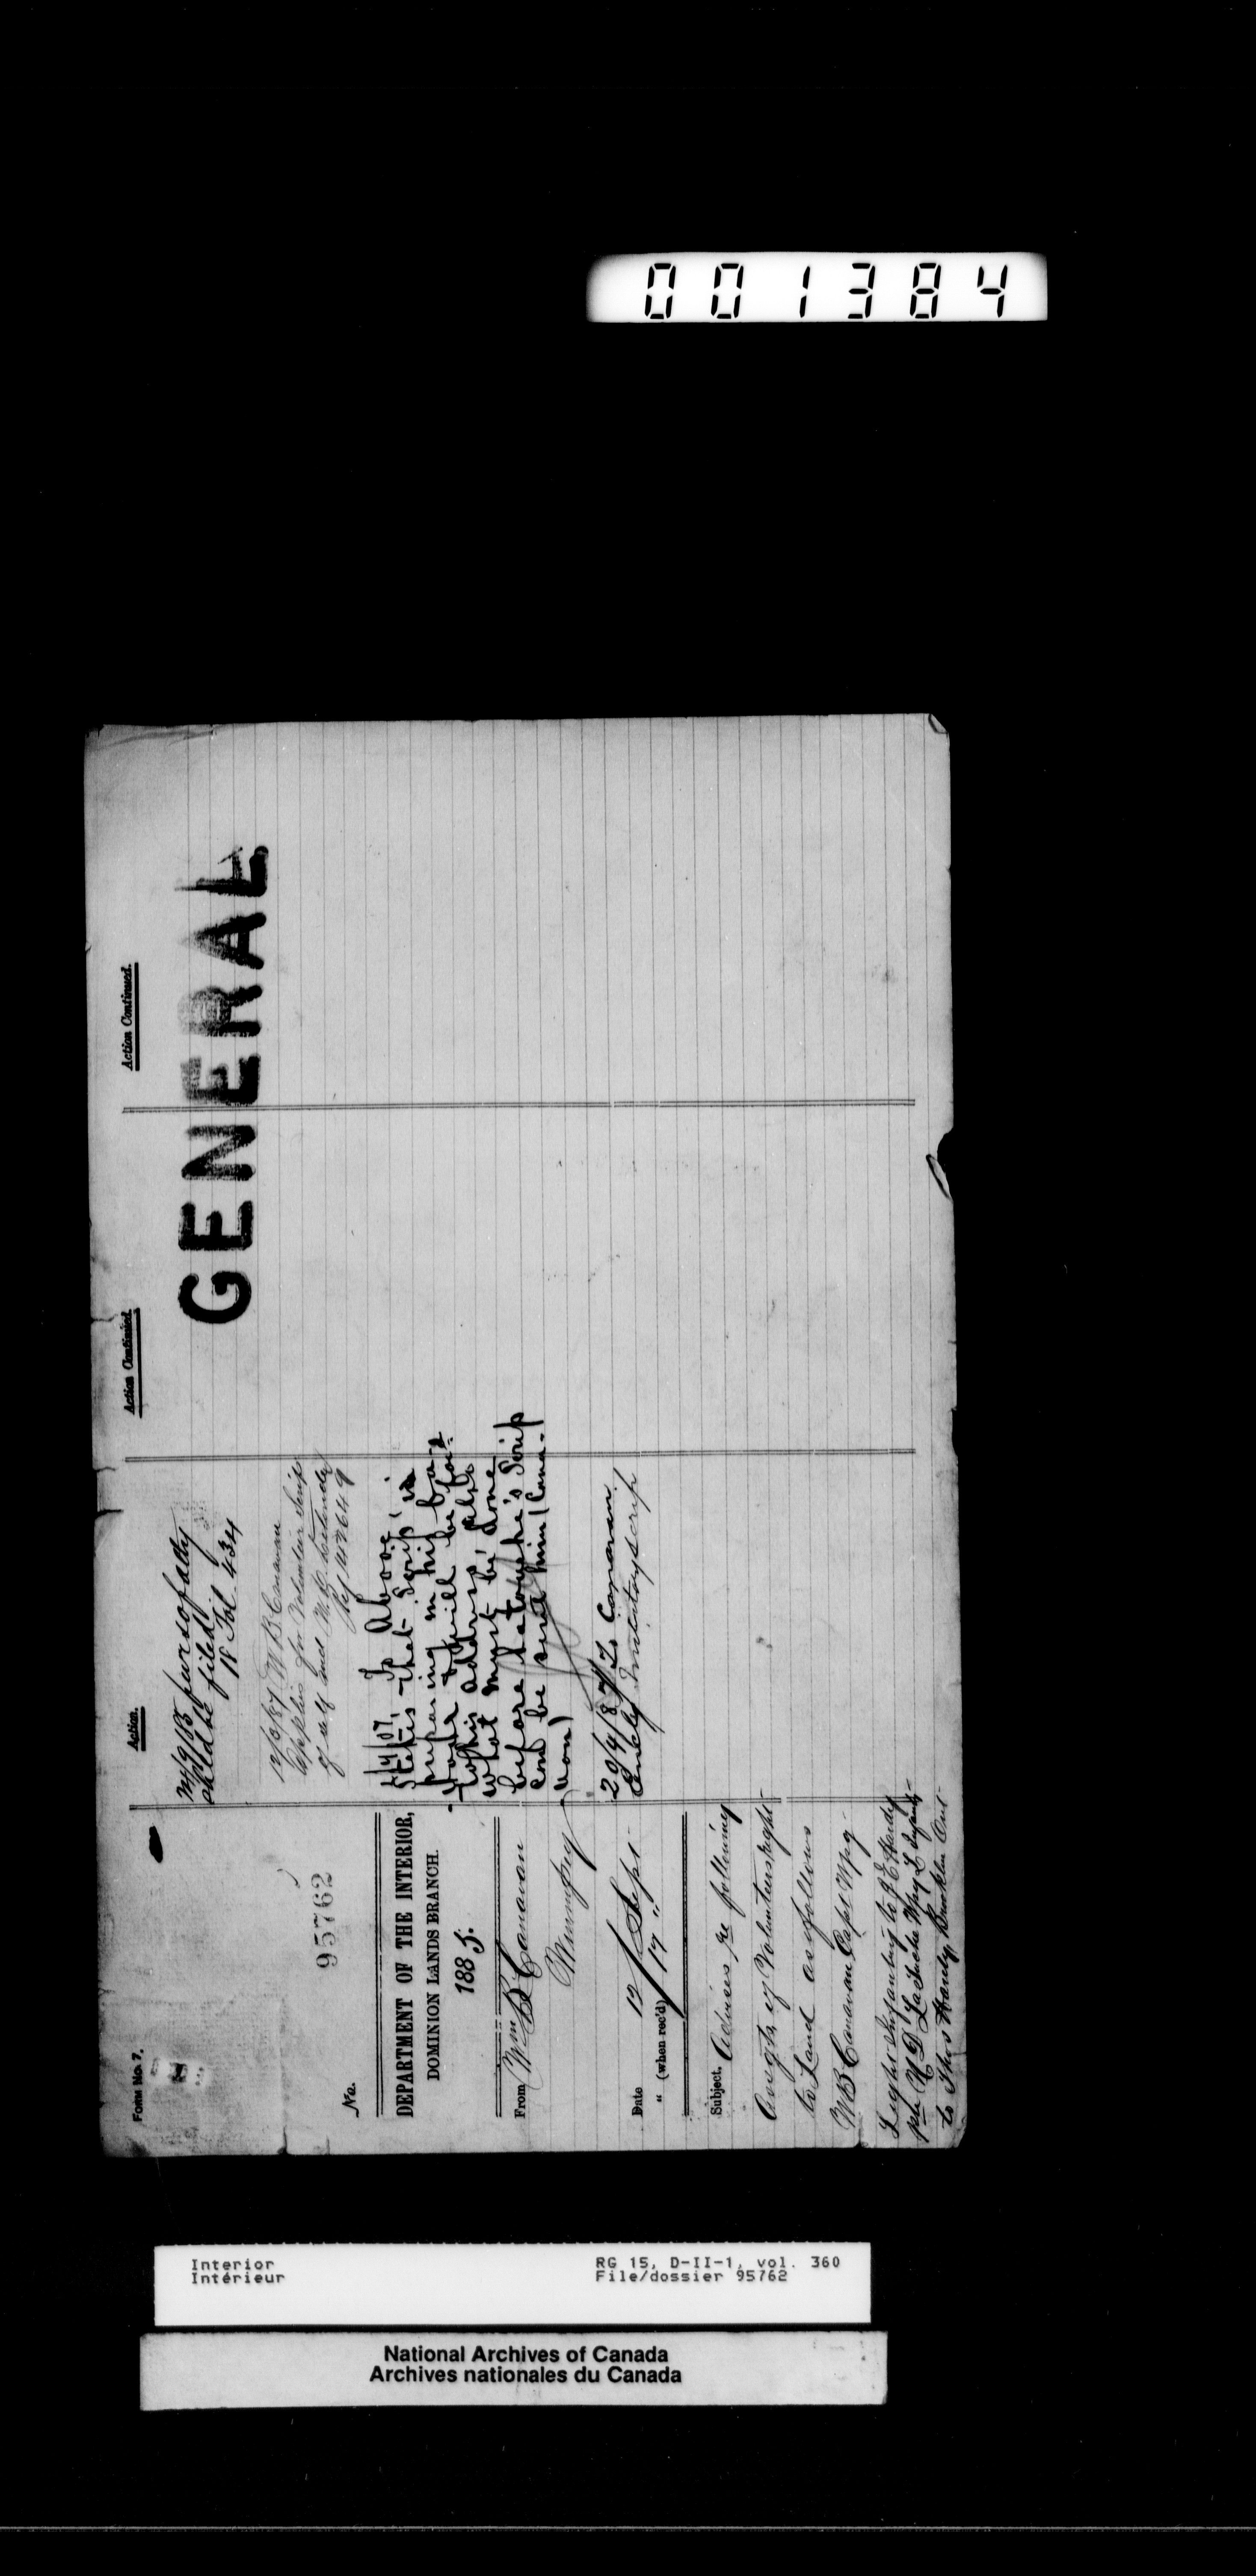 001384
Form No. 7.
No. 95762
DEPARTMENT OF THE INTERIOR,
DOMINION LANDS BRANCH.
1885.
From Wm B Canavan
Winnipeg
Date 12 Sept
" (when rec'd) 17 "
Subject. Advises re following
Assgts of Volunteers right
to Land as follows
W B Canavan Capt Wpg
Light Infantry to Hardy
pte H D Wpg L Infanty
to Thos Hardy, Brooklin Ont
Action.
filed
18 Fol. 434
W B Canavan
Applies for Volunteer Scrip
of self and
To Above
States that Scrip is
preparing in his
& will be
to his address, also
what must be done
before Latouche's Scrip
can be sent him (Cana-
van)
29/4/87 To Canavan
Encly Military scrip
Action Continued.
Action Continued.
GENERAL
Interior
Intérieur
RG 15, D-II-1, vol. 360
File/dossier 95762
National Archives of Canada
Archives nationales du Canada